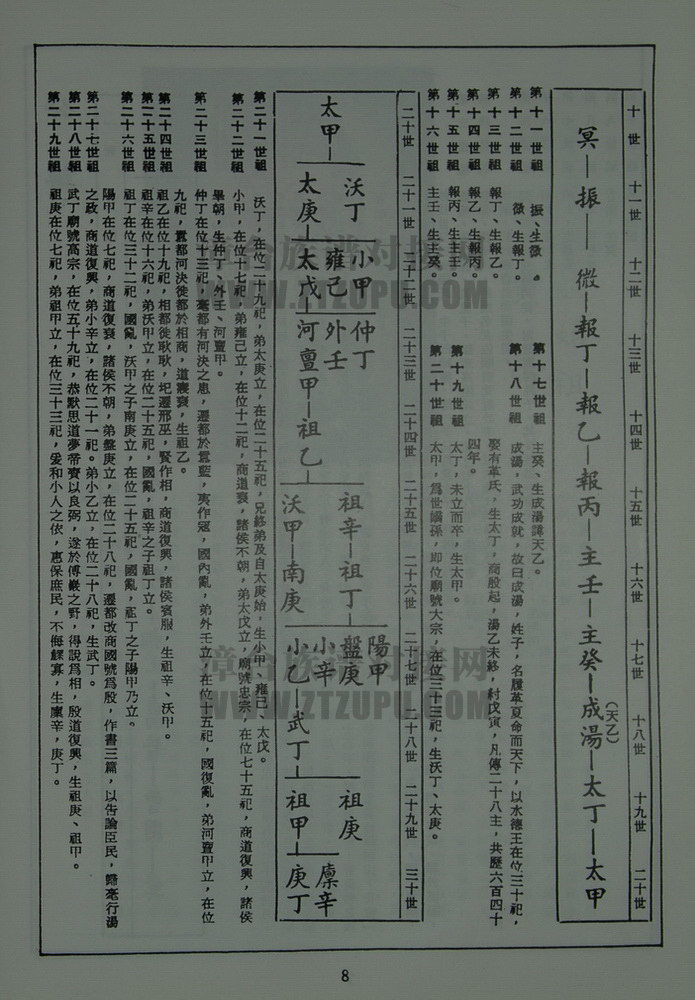 十世　十一世　十二世　十三世　十四世　十五世　十六世　十七世　十八世　十九世　二十世
冥—振—微—報丁—報乙—報丙—主壬—主癸—成湯—太丁—太甲
(天乙)
第十一世祖　振、生微。
第十二世祖　微、生報丁。
第十三世祖　報丁、生報乙。
第十四世祖　報乙、生報丙。
第十五世祖　報丙、生主壬。
第十六世祖　主壬、生主癸。
第十七世祖　主癸、生成湯諱天乙。
第十八世祖　成湯，武功成就，故曰成湯，姓子，名履革夏命而天下，以水德王在位三十祀，
娶有莘氏，生太丁，商殷起，湯乙未終，紂戊寅，凡傳二十八主，共歷六百四十
四年。
第十九世祖　太丁，未立而卒，生太甲。
第二十世祖　太甲，爲世嫡孫，即位廟號大宗，在位三十三祀，生沃丁、太庚。
二十世　二十一世　二十二世　二十三世　二十四世　二十五世　二十六世　二十七世　二十八世　二十九世　三十世
陽甲
沃丁　小甲　仲丁　祖辛—祖丁　盤庚　祖庚
雍己　外壬　小辛　廩辛
太甲—太庚—太戊—河亶甲—祖乙　沃甲—南庚　小乙—武丁　祖甲—庚丁
第二十一世祖　沃丁，在位二十九祀，弟太庚立，在位二十五祀，兄終弟及自太庚始，生小甲、雍己、太戊。
第二十二世祖　小甲，在位十七祀，弟雍己立，在位十二祀，商道衰，諸侯不朝，弟太戊立，廟號忠宗，在位七十五祀，商道復興，諸侯
畢朝，生仲丁、外壬、河亶甲。
第二十三世祖　仲丁在位十三祀，亳都有河決之患，遷都於囂藍，夷作寇，國內亂，弟外壬立，在位十五祀，國復亂，弟河亶甲立，在位
九祀，囂都河決徙都於相商，道寖衰，生祖乙。
第二十四世祖　祖乙在位十九祀，相都徙耿耿，圮遷邢巫，賢作相，商道復興，諸侯賓服，生祖辛、沃甲。
第二十五世祖　祖辛在位十六祀，弟沃甲立，在位二十五祀，國亂，祖辛之子祖丁立。
第二十六世祖　祖丁在位三十二祀，國亂，沃甲之子南庚立，在位二十五祀，國亂，祖丁之子陽甲乃立。
第二十七世祖　陽甲在位七祀，商道復衰，諸侯不朝，弟盤庚立，在位二十八祀，遷都改商國號爲殷，作書三篇，以告諭臣民，歸亳行湯
之政，商道復興，弟小辛立，在位二十一祀。弟小乙立，在位二十八祀，生武丁。
第二十八世祖　武丁廟號高宗，在位五十九祀，恭默思道夢帝賚以良弼，遂於傅巖之野，得說爲相，殷道復興，生祖庚、祖甲。
第二十九世祖　祖庚在位七祀，弟祖甲立，在位三十三祀，愛和小人之依，惠保庶民，不侮鰥寡，生廩辛，庚丁。
8
WWW.ZTZUPU.COM
WWW.ZTZUPU.COM